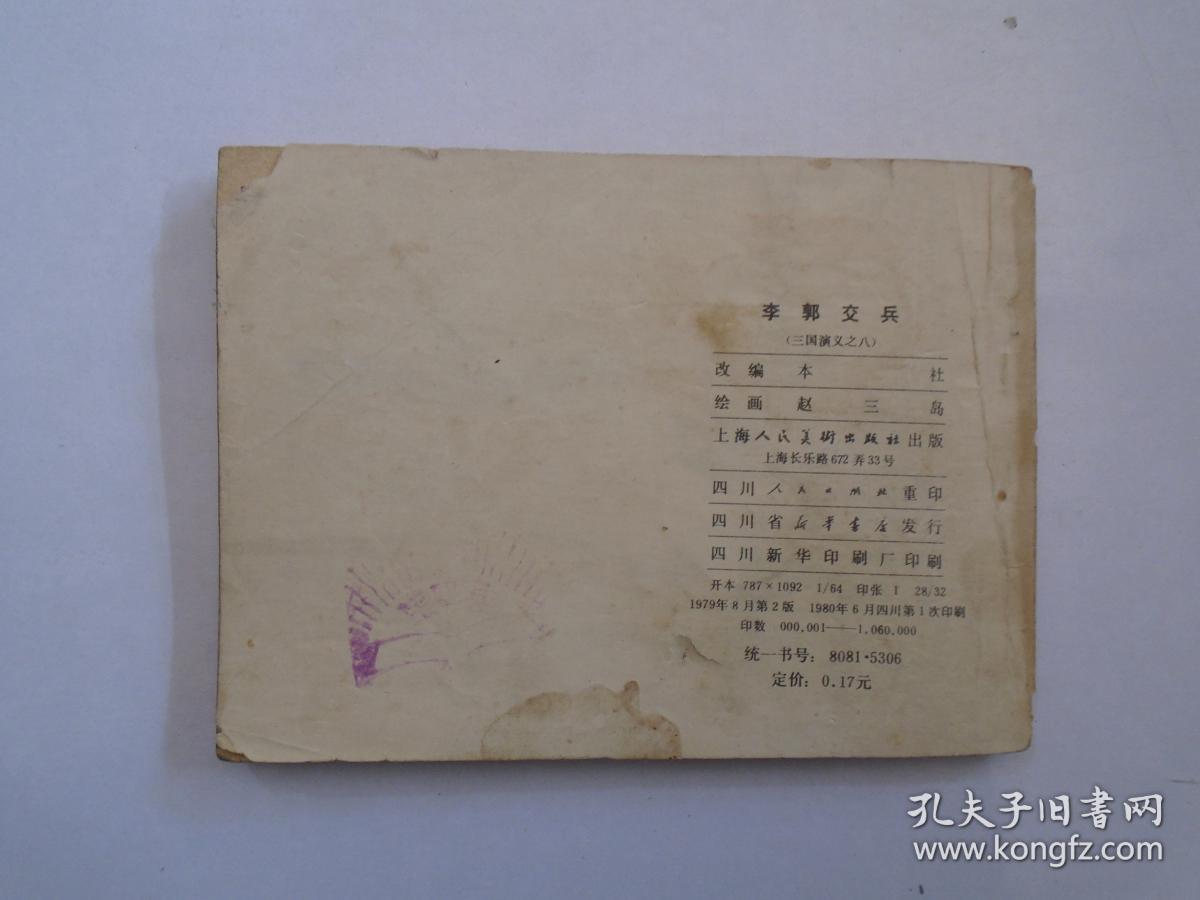 李郭交兵
（三国演义之八）
改编 本社
绘画 赵三岛
上海人民美术出版社出版
上海长乐路672弄33号
四川人民出版社重印
四川省新华书店发行
四川新华印刷厂印刷
开本 787×1092 1/64 印张 1 28/32
1979年8月第2版 1980年6月四川第1次印刷
印数 000,001——1,060,000
统一书号：8081·5306
定价：0.17元
孔夫子旧书网
www.kongfz.com